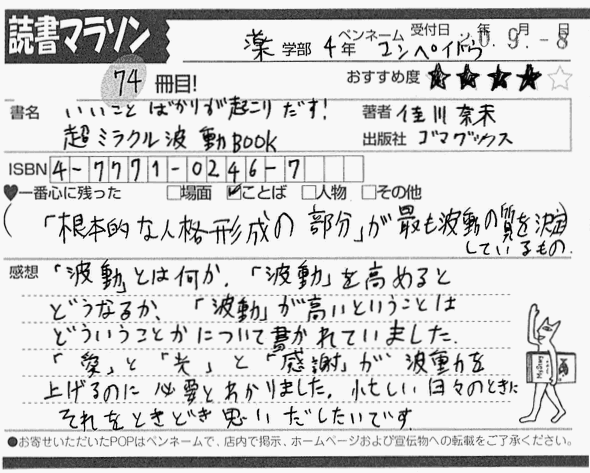 読書マラソン
薬 学部 4年 ペンネーム コンペイトウ 受付日 年 月 日 0.9.-8
74 冊目!
おすすめ度 ★★★★☆
書名 いいことばかりが起こりだす! 著者 佳川奈未
超ミラクル波動BOOK 出版社 ゴマブックス
ISBN 4-7771-0246-7
♥一番心に残った □場面 ☑ことば □人物 □その他
(「根本的な人格形成の部分」が最も波動の質を決定
しているもの.)
感想 「波動」とは何か.「波動」を高めると
どうなるか、「波動」が高いということは
どういうことかについて書かれていました.
「愛」と「光」と「感謝」が波動を
上げるのに必要とわかりました. 忙しい日々のときに
それをときどき思いだしたいです.
●お寄せいただいたPOPはペンネームで、店内で掲示、ホームページおよび宣伝物への転載をご了承ください。